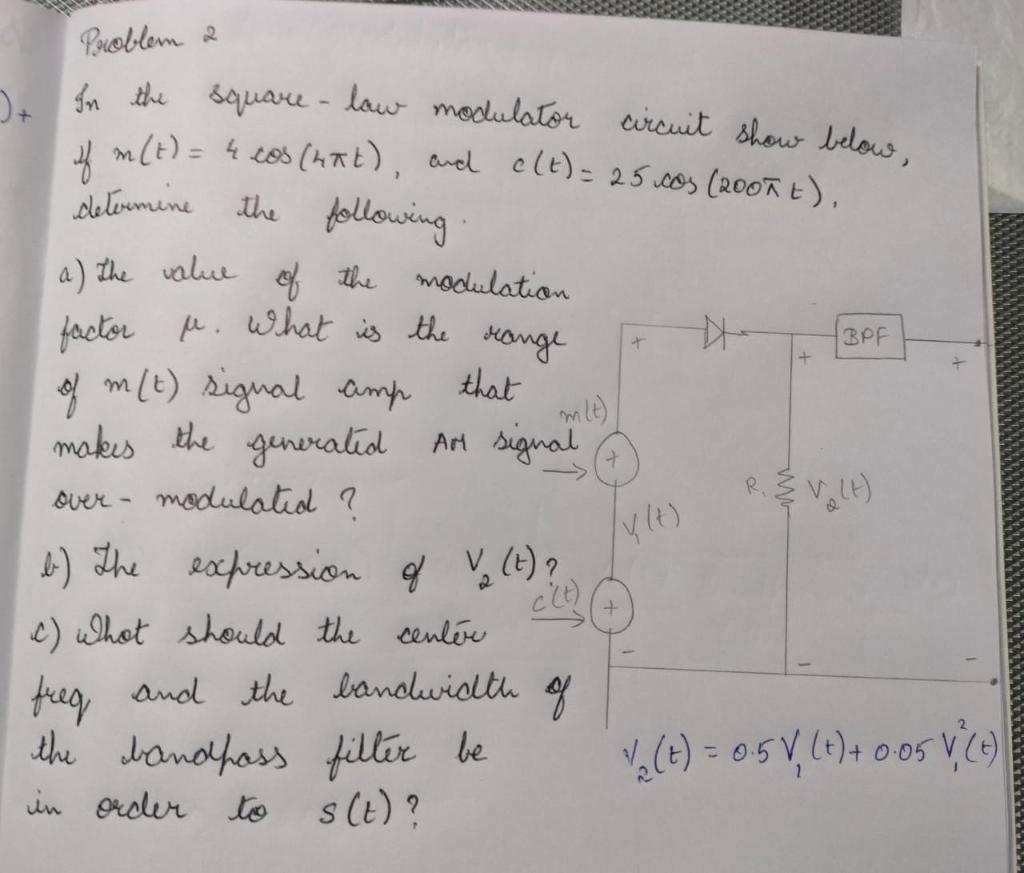 Problem 2
)+
In the square - law modulator circuit show below,
if m(t) = 4 cos(4πt), and c(t) = 25 cos(200πt),
determine the following.
a) the value of the modulation
factor μ. What is the range
of m(t) signal amp that
makes the generated AM signal
over - modulated?
b) The expression of V₂(t)?
c) What should the center
freq and the bandwidth of
the bandpass filter be
in order to s(t)?
+
BPF
+
+
m(t)
+
R. V₂(t)
V₁(t)
c(t)
+
-
-
-
V₂(t) = 0.5 V₁(t) + 0.05 V₁²(t)